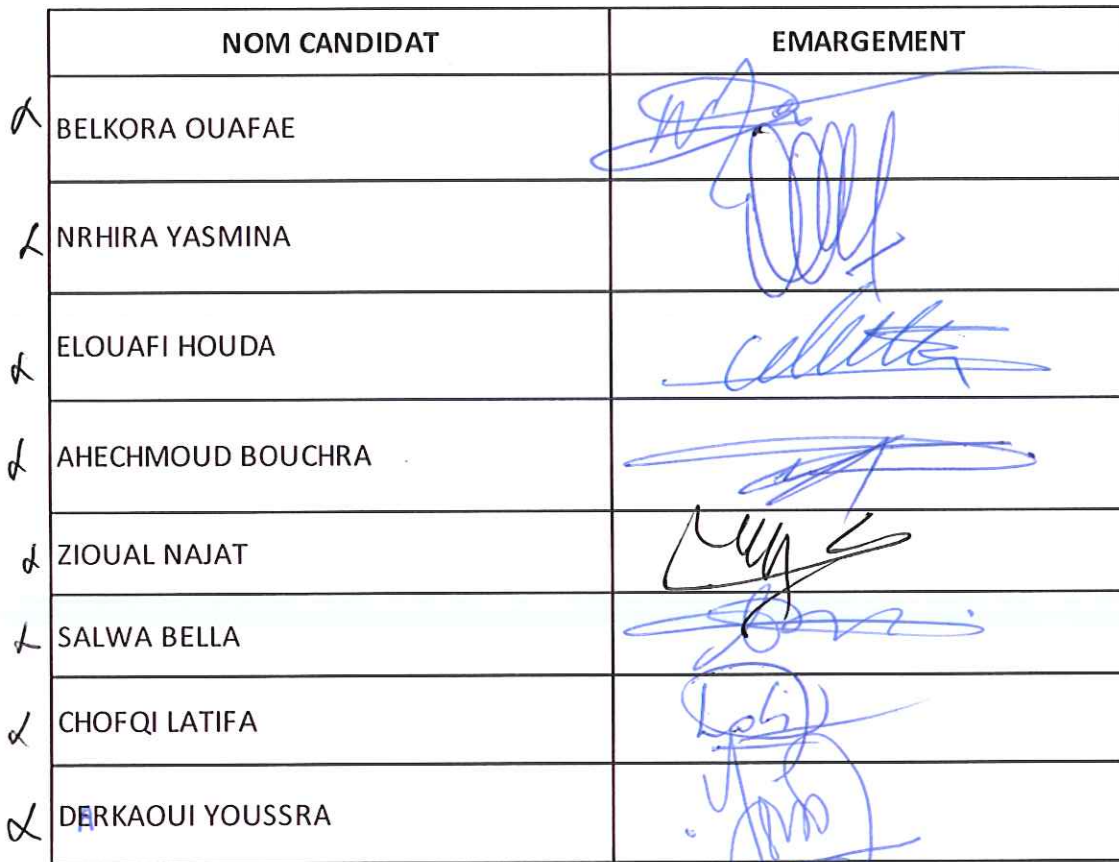 NOM CANDIDAT EMARGEMENT
BELKORA OUAFAE
NRHIRA YASMINA
ELOUAFI HOUDA
AHECHMOUD BOUCHRA
ZIOUAL NAJAT
SALWA BELLA
CHOFQI LATIFA
DERKAOUI YOUSSRA